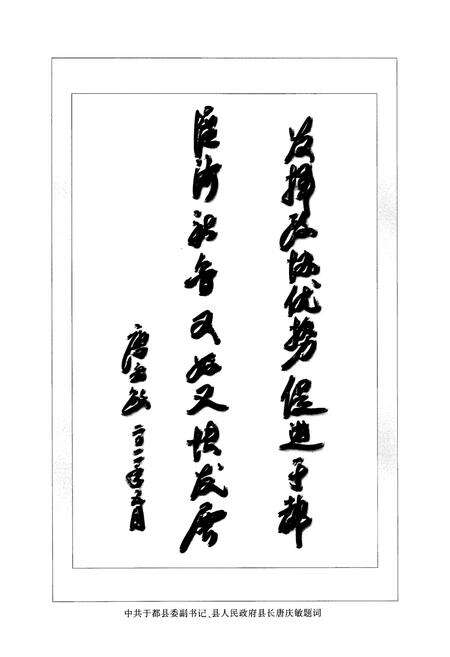 发挥政协优势 促进于都
经济社会又好又快发展
唐庆敏 二〇一一年五月
中共于都县委副书记、县人民政府县长唐庆敏题词